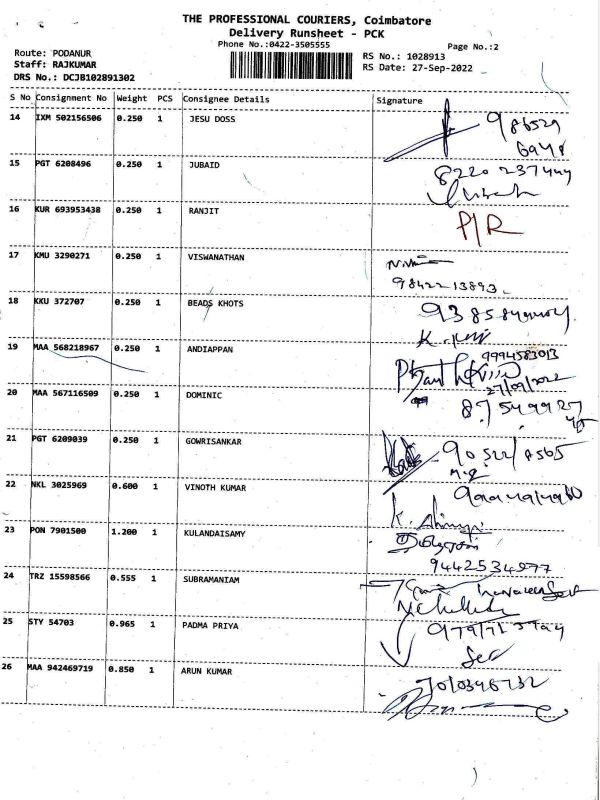 THE PROFESSIONAL COURIERS, Coimbatore
Delivery Runsheet - PCK
Phone No.:0422-3505555
Page No.:2
Route: PODANUR
Staff: RAJKUMAR
DRS No.: DCJB102891302
RS No.: 1028913
RS Date: 27-Sep-2022
S No Consignment No Weight PCS Consignee Details Signature
14 IXM 502156506 0.250 1 JESU DOSS
15 PGT 6208496 0.250 1 JUBAID
16 KUR 693953438 0.250 1 RANJIT P/R
17 KMU 3290271 0.250 1 VISWANATHAN
9842213893
18 KKU 372707 0.250 1 BEADS KHOTS
19 MAA 568218967 0.250 1 ANDIAPPAN
9994583013
27/09/2022
20 MAA 567116509 0.250 1 DOMINIC
21 PGT 6209039 0.250 1 GOWRISANKAR
22 NKL 3025969 0.600 1 VINOTH KUMAR
23 PON 7901500 1.200 1 KULANDAISAMY
9442534977
24 TRZ 15598566 0.555 1 SUBRAMANIAM
25 STY 54703 0.965 1 PADMA PRIYA
26 MAA 942469719 0.850 1 ARUN KUMAR